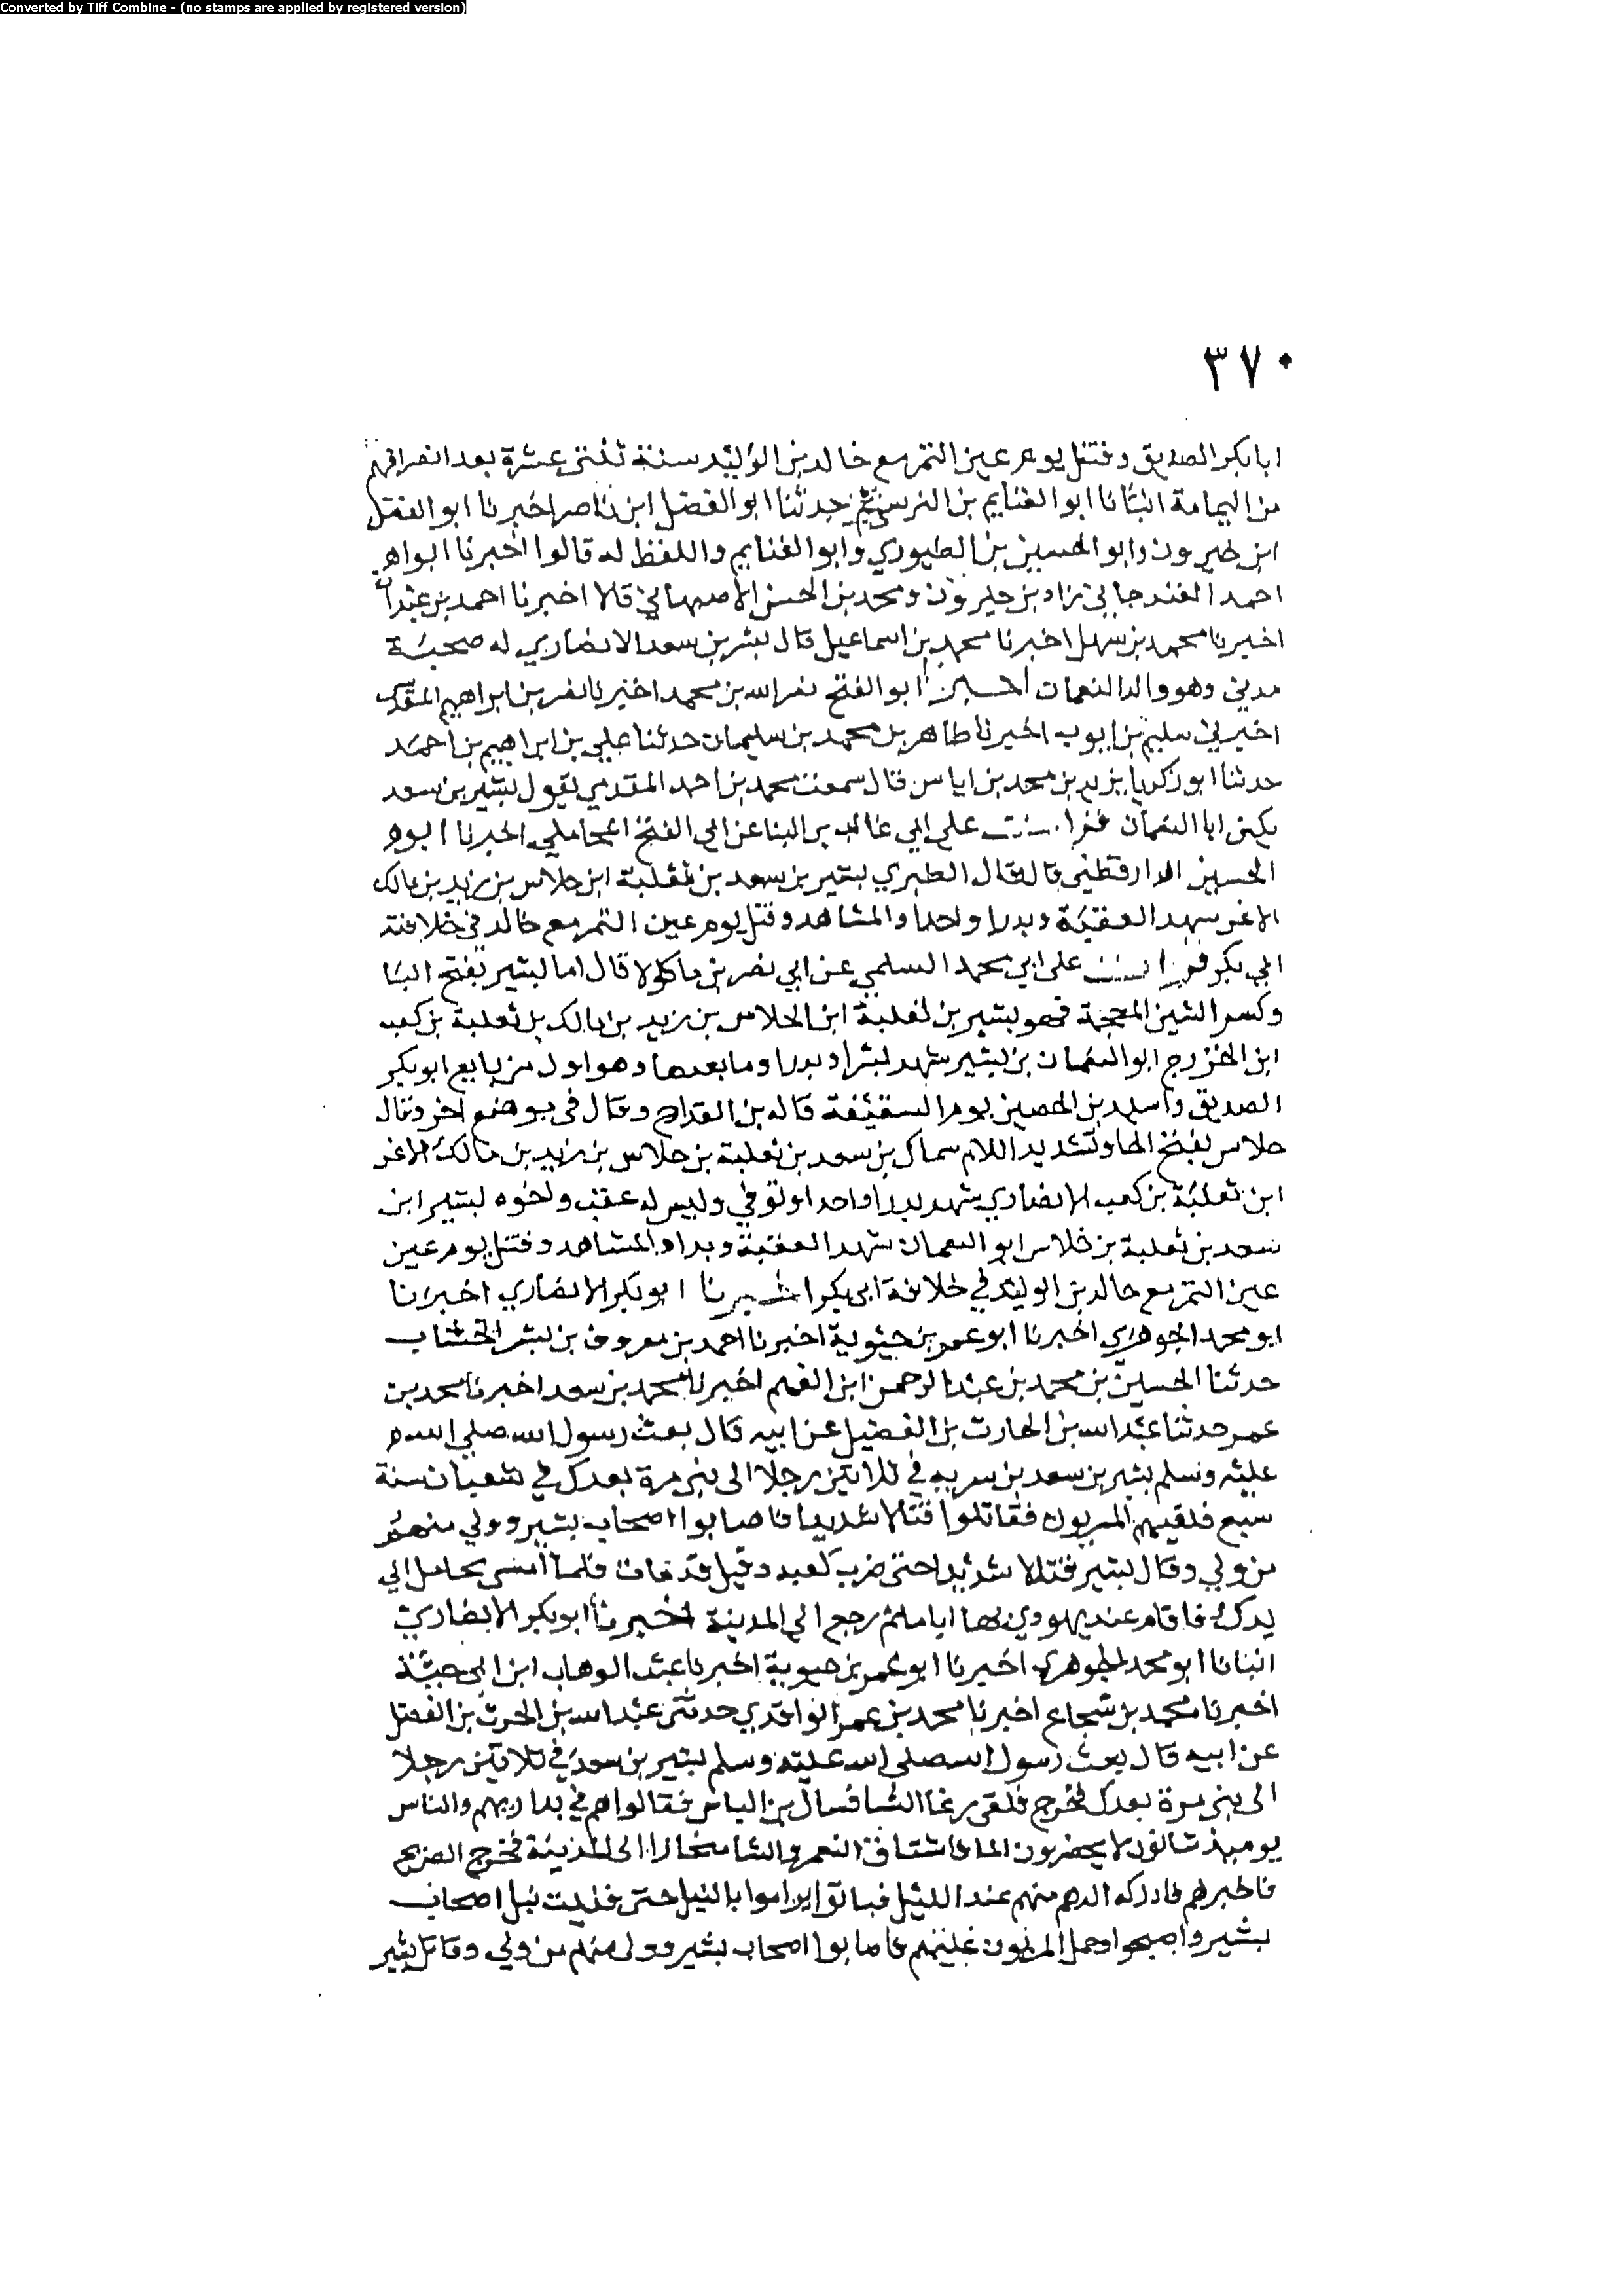 Converted by Tiff Combine - (no stamps are applied by registered version)
٣٧٠
ابا بكر الصديق وقتل يوم عين التمر مع خالد بن الوليد سنة ثنتى عشرة بعد انصرافهم
من اليمامة انبانا ابو الغنايم بن النرسي حدثنا ابو الفضل ابن ناصر اخبرنا ابو الفضل
ابن خيرون وابو الحسين بن الطيوري وابو الغنايم واللفظ له قالوا اخبرنا ابواهر
احمد الغندجاني زاد بن خيرون ومحمد بن الحسن الاصبهاني قالا اخبرنا احمد بن عبدان
اخبرنا محمد بن سهل اخبرنا محمد بن اسماعيل قال بشر بن سعد الانصاري له صحبة
مدني وهو والد النعمان اخبرنا ابو الفتح نصر الله بن محمد اخبرنا نصر بن ابراهيم المقدسي
اخبرني سليم بن ايوب اخبرنا طاهر بن محمد بن سليمان حدثنا علي بن ابراهيم بن احمد
حدثنا ابو زكريا يزيد بن محمد بن اياس قال سمعت محمد بن احمد المقدمي يقول بشير بن سعد
يكنى ابا النعمان قرات على ابي غالب بن البنا عن ابي الفتح المحاملي اخبرنا ابوهر
الحسين الدارقطني قال قال الطبري بشير بن سعد بن ثعلبة ابن خلاس بن زيد بن مالك
الاغر شهد العقبة وبدرا واحدا والمشاهد وقتل يوم عين التمر مع خالد في خلافته
ابي بكر قرات على ابي محمد السلمي عن ابي نصر بن ماكولا قال اما بشير بفتح البا
وكسر الشين المعجمة فهو بشير بن ثعلبة ابن الحلاس بن زيد بن مالك بن ثعلبة بن كعب
ابن الخزرج ابو النعمان بن بشير شهد بشرا وبدرا وما بعدها وهو اول من بايع ابو بكر
الصديق واسيد بن الحصين يوم السقيفة قاله بن القداح وقال فى موضع اخر وقال
حلاس بفتح الحا وتشديد اللام سماك بن سعد بن ثعلبة بن حلاس بن زيد بن مالك الاغر
ابن ثعلبة بن كعب الانصاري شهد بدرا واحد اوتوفي وليس له عقب واخوه بشير ابن
سعد بن ثعلبة بن خلاس ابو النعمان شهد العقبة وبدا والمشاهد وقتل يوم عين
عين التمر مع خالد بن الوليد في خلافة ابى بكر اخبرنا ابو بكر الانصاري اخبرنا
ابو محمد الجوهري اخبرنا ابو عمر بن حيوية اخبرنا احمد بن معروف بن بشر الخشاب
حدثنا الحسين بن محمد بن عبد الرحمن ابن الفهم اخبرنا محمد بن سعد اخبرنا محمد بن
عمر حدثنا عبد الله بن الحارث بن الفضيل عن ابيه قال بعث رسول الله صلى الله
عليه وسلم بشير بن سعد بن سريه في ثلاثين رجلا الى بني مرة بفدك في شعبان سنة
سبع فلقيهم المريون فقاتلوا قتالا شديدا فاصابوا اصحاب بشير وولي منهم
من ولي وقال بشير قتالا شديدا حتى ضرب كعبه وقيل قد مات فلما امسى تحامل الي
يدك فاقام عند يهودي بها اياما ثم رجع الي المدينة اخبرنا ابو بكر الانصاري
انبانا ابو محمد الجوهري اخبرنا ابو عمر بن حيوية اخبرنا عبد الوهاب ابن ابى حبيبة
اخبرنا محمد بن شجاع اخبرنا محمد بن عمر الواقدي حدثنى عبد الله بن الحرث بن الفضل
عن ابيه قال بعث رسول الله صلى الله عليه وسلم بشير بن سعد في ثلاثين رجلا
الى بني مرة بفدك فخرج فلقى رعا الشا فسال بن الناس فقالوا هم في بداربهم والناس
يوميذ شاتون لا يحضرون الما فاشتاق النعم والشا منحدرا الى المدينة فخرج الصريح
فاخبرهم فادركه الدهم منهم عند الليل فباتوا يراموا بالنبل حتى فنيت نبل اصحاب
بشير واصبحوا وحمل المريون عليهم فاصابوا اصحاب بشير وولى منهم من ولي وقاتل بشير